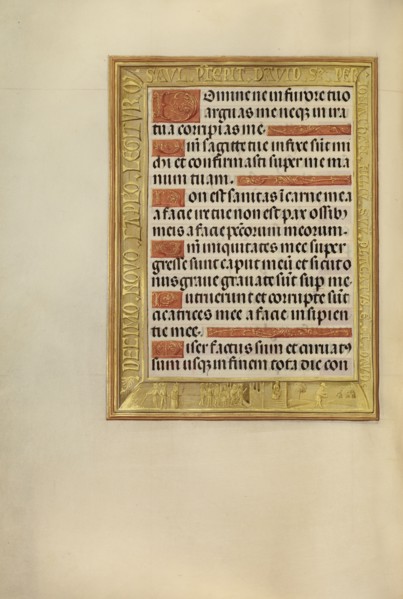 SAVL DAVID
Domine ne in furore tuo
arguas me neqꝫ in ira
tua corripias me.
Qm̄ sagitte tue infixe sūt mi
chi et confirmasti super me ma
num tuam.
Non est sanitas ī carne mea
a facie ire tue non est pax ossibꝰ
meis a facie pctōrum meorum.
Qm̄ iniquitates mee super
gresse sunt caput meū et sicut o
nus graue grauate sūt sup̄ me.
Putruerunt et corrupte sūt
cicatrices mee a facie insipien
tie mee.
Miser factus sum et curuatꝰ
sum usqꝫ in finem tota die con